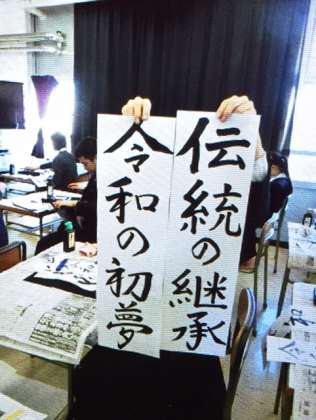 伝統の継承
令和の初夢